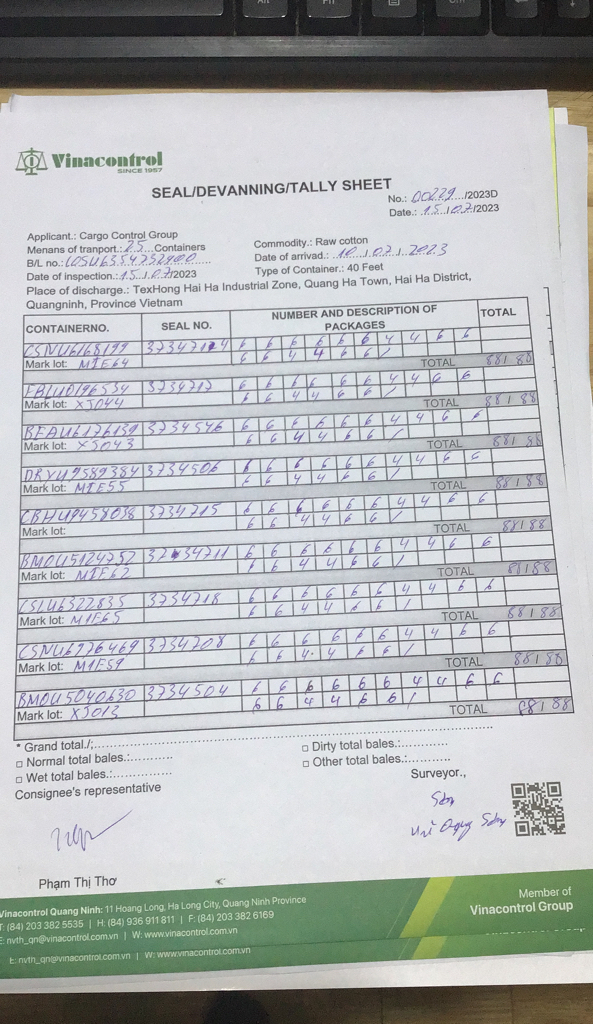 Alt
Fn
Ctrl
Vinacontrol
SINCE 1957
SEAL/DEVANNING/TALLY SHEET
No.: 00229/2023D
Date.: 15/07/2023
Applicant.: Cargo Control Group
Commodity.: Raw cotton
Menans of tranport.: 25 Containers
Date of arrivad.: 10/07/2023
B/L no.: COSU6354752900
Type of Container.: 40 Feet
Date of inspection.: 15/07/2023
Place of discharge.: TexHong Hai Ha Industrial Zone, Quang Ha Town, Hai Ha District,
Quangninh, Province Vietnam
CONTAINERNO. SEAL NO. NUMBER AND DESCRIPTION OF PACKAGES TOTAL
CSNU6168199 6 6 6 6 6 6 4 4 6 6
Mark lot: MIE64 6 6 4 4 6 6 / TOTAL 88/88
3734717 6 6 6 6 6 6 4 4 6 6
Mark lot: XJ044 6 6 4 4 6 6 / TOTAL 88/88
BEAU6176139 3734546 6 6 6 6 6 6 4 4 6 6
Mark lot: XJ043 6 6 4 4 6 6 / TOTAL 88/88
DRYU9589384 3734506 6 6 6 6 6 6 4 4 6 6
Mark lot: MIE55 6 6 4 4 6 6 / TOTAL 88/88
CBHU9458038 3734715 6 6 6 6 6 6 4 4 6 6
Mark lot: 6 6 4 4 6 6 / TOTAL 88/88
BMOU5124752 6 6 6 6 6 6 4 4 6 6
Mark lot: MIE62 6 6 4 4 6 6 / TOTAL 88/88
CSLU6322835 3734718 6 6 6 6 6 6 4 4 6 6
Mark lot: MIE65 6 6 4 4 6 6 / TOTAL 88/88
CSNU6976469 3734708 6 6 6 6 6 6 4 4 6 6
Mark lot: MIE59 6 6 4 4 6 6 / TOTAL 88/88
BMOU5040630 3734504 6 6 6 6 6 6 4 4 6 6
Mark lot: XJ013 6 6 4 4 6 6 / TOTAL 88/88
* Grand total./:
□ Normal total bales.:
□ Dirty total bales.:
□ Wet total bales.:
□ Other total bales.:
Consignee's representative
Surveyor.,
Sơn
Sơn
Phạm Thị Thơ
Vinacontrol Quang Ninh: 11 Hoang Long, Ha Long City, Quang Ninh Province
T: (84) 203 382 5535 | H: (84) 936 911 811 | F: (84) 203 382 6169
E: nvth_qn@vinacontrol.com.vn | W: www.vinacontrol.com.vn
Member of
Vinacontrol Group
E: nvth_qn@vinacontrol.com.vn | W: www.vinacontrol.com.vn